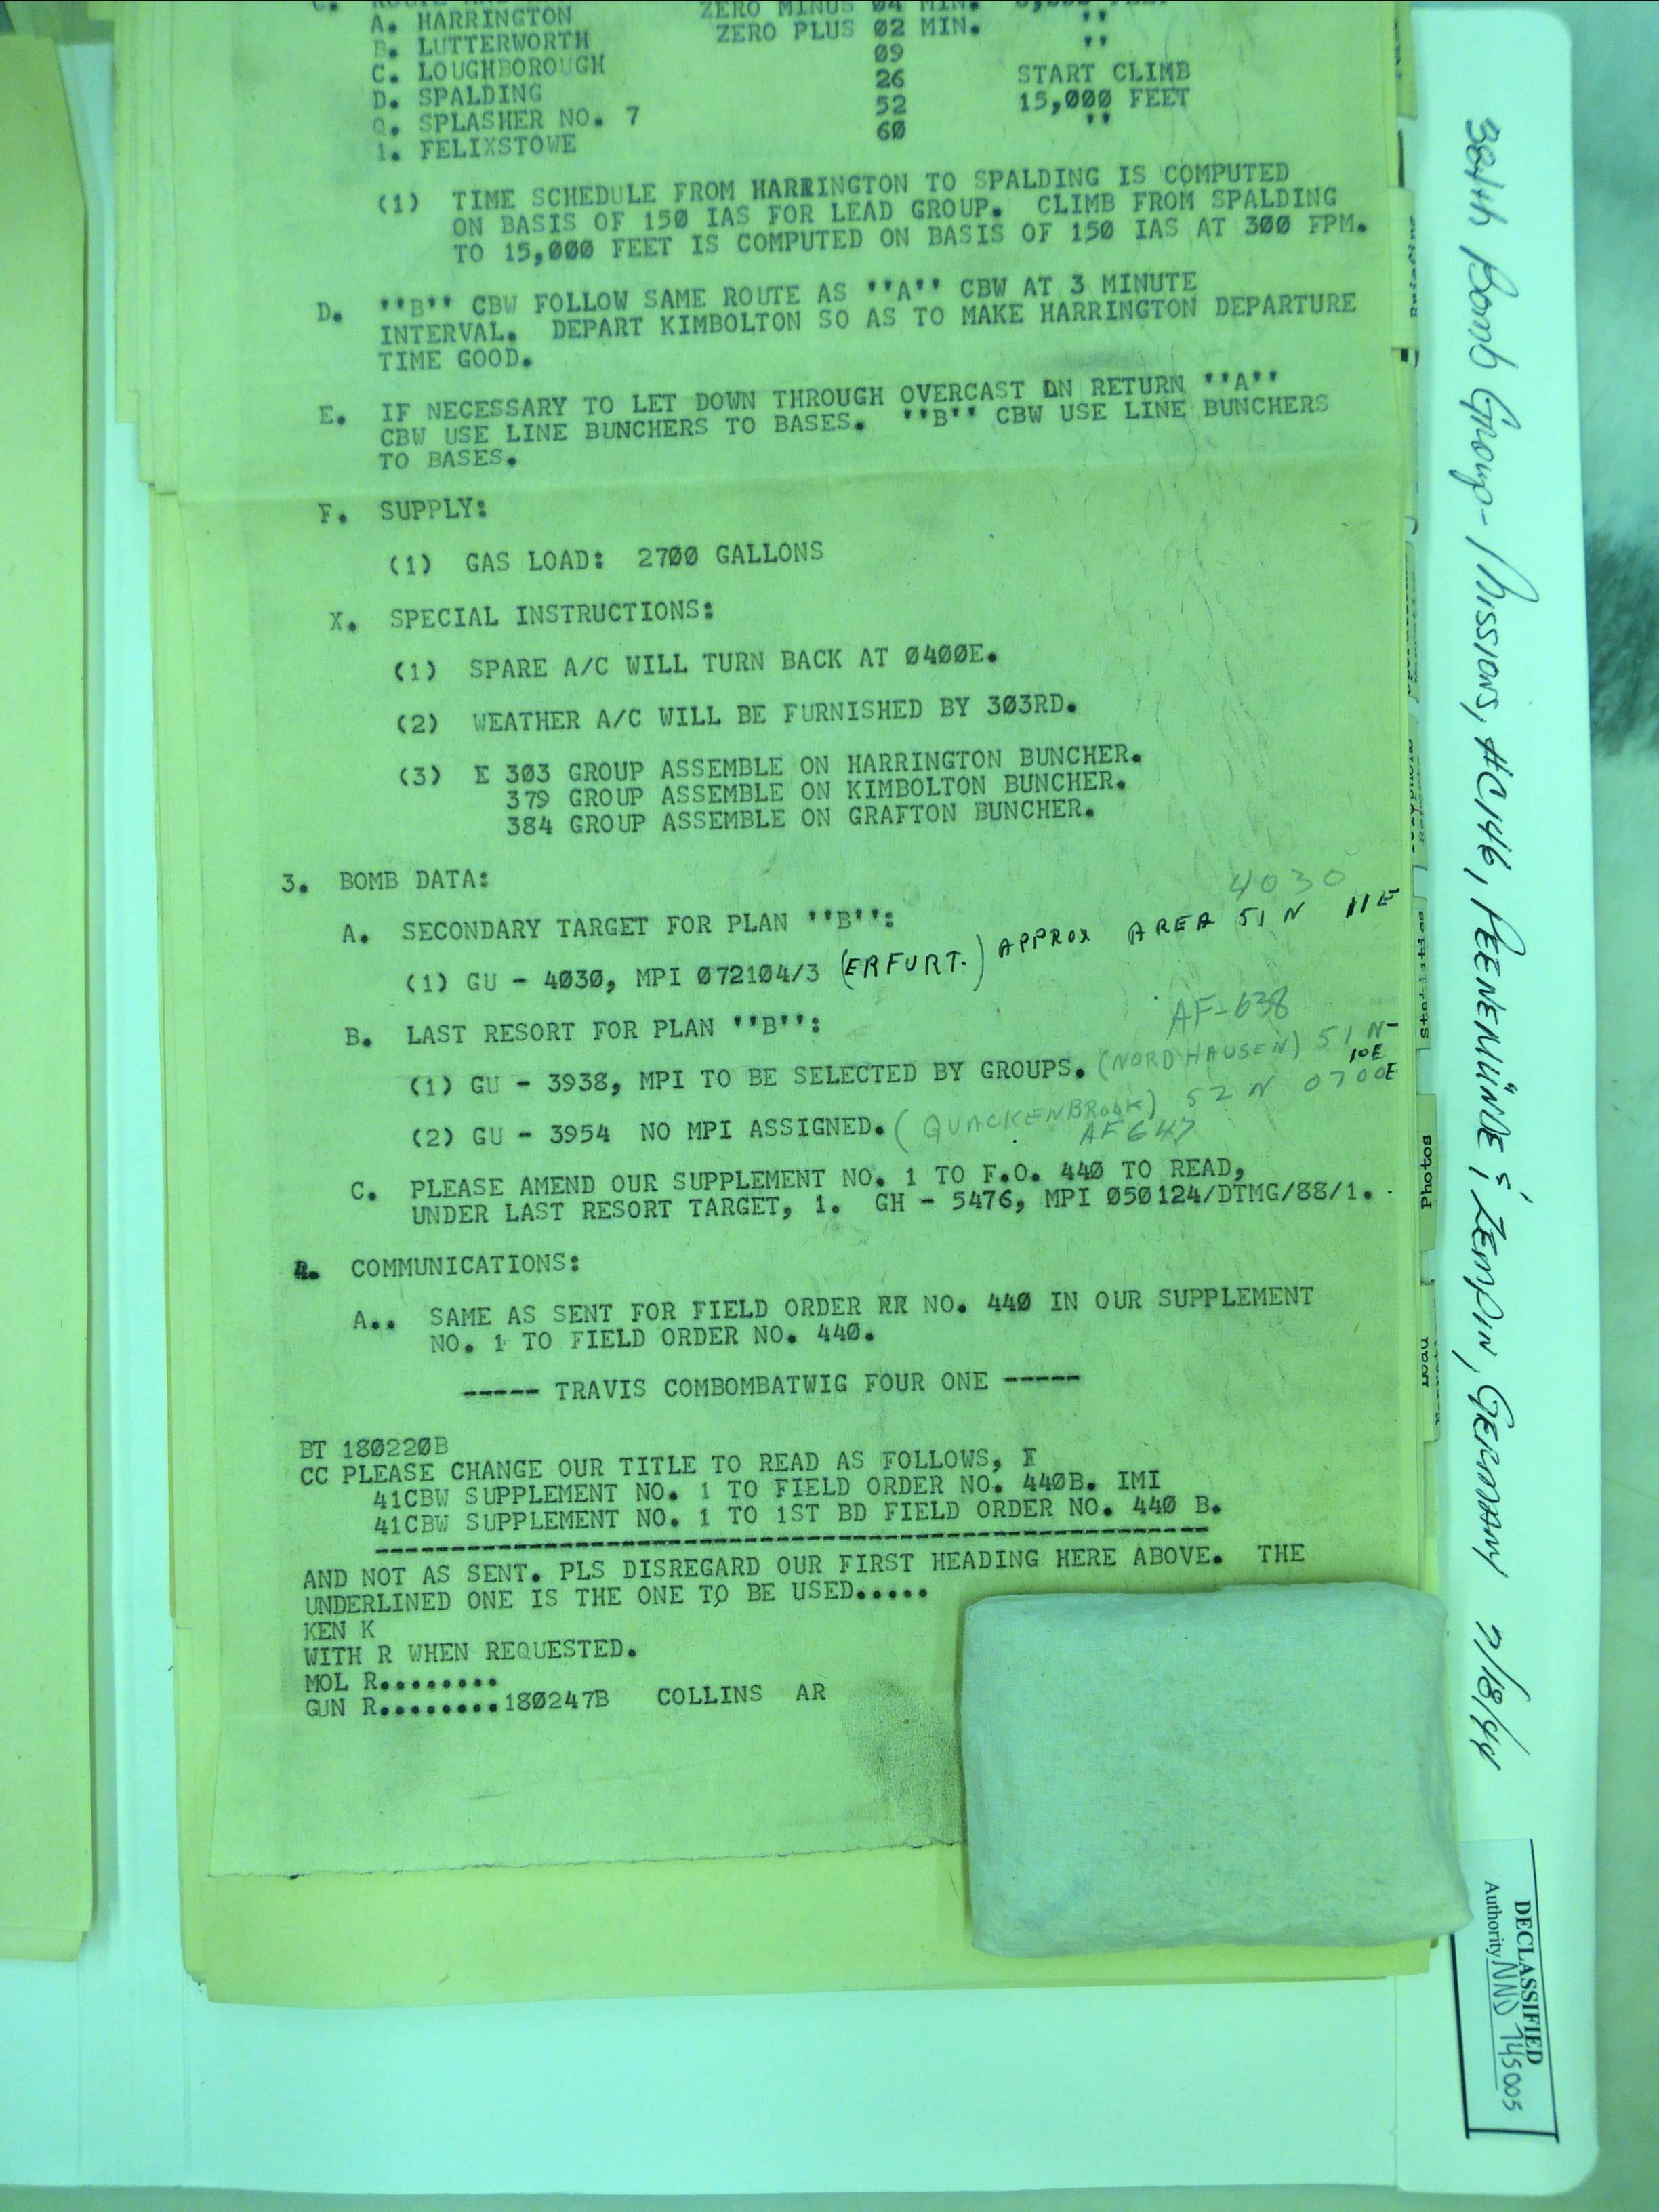 A. HARRINGTON ZERO MINUS 04 MIN.
B. LUTTERWORTH ZERO PLUS 02 MIN. ''
C. LOUGHBOROUGH 09 ''
D. SPALDING 26 START CLIMB
Q. SPLASHER NO. 7 52 15,000 FEET
1. FELIXSTOWE 60 ''
(1) TIME SCHEDULE FROM HARRINGTON TO SPALDING IS COMPUTED
ON BASIS OF 150 IAS FOR LEAD GROUP. CLIMB FROM SPALDING
TO 15,000 FEET IS COMPUTED ON BASIS OF 150 IAS AT 300 FPM.
D. ''B'' CBW FOLLOW SAME ROUTE AS ''A'' CBW AT 3 MINUTE
INTERVAL. DEPART KIMBOLTON SO AS TO MAKE HARRINGTON DEPARTURE
TIME GOOD.
E. IF NECESSARY TO LET DOWN THROUGH OVERCAST ON RETURN ''A''
CBW USE LINE BUNCHERS TO BASES. ''B'' CBW USE LINE BUNCHERS
TO BASES.
F. SUPPLY:
(1) GAS LOAD: 2700 GALLONS
X. SPECIAL INSTRUCTIONS:
(1) SPARE A/C WILL TURN BACK AT 0400E.
(2) WEATHER A/C WILL BE FURNISHED BY 303RD.
(3) E 303 GROUP ASSEMBLE ON HARRINGTON BUNCHER.
379 GROUP ASSEMBLE ON KIMBOLTON BUNCHER.
384 GROUP ASSEMBLE ON GRAFTON BUNCHER.
3. BOMB DATA:
4030
A. SECONDARY TARGET FOR PLAN ''B'':
(1) GU - 4030, MPI 072104/3 (ERFURT.) APPROX AREA 51 N 11E
B. LAST RESORT FOR PLAN ''B'': AF-638
(1) GU - 3938, MPI TO BE SELECTED BY GROUPS. (NORDHAUSEN) 51 N- 10E
(2) GU - 3954 NO MPI ASSIGNED. (QUACKENBROOK) 52 N 0700E
AF 647
C. PLEASE AMEND OUR SUPPLEMENT NO. 1 TO F.O. 440 TO READ,
UNDER LAST RESORT TARGET, 1. GH - 5476, MPI 050124/DTMG/88/1.
4. COMMUNICATIONS:
A.. SAME AS SENT FOR FIELD ORDER RR NO. 440 IN OUR SUPPLEMENT
NO. 1 TO FIELD ORDER NO. 440.
----- TRAVIS COMBOMBATWIG FOUR ONE -----
BT 180220B
CC PLEASE CHANGE OUR TITLE TO READ AS FOLLOWS, E
41CBW SUPPLEMENT NO. 1 TO FIELD ORDER NO. 440B. IMI
41CBW SUPPLEMENT NO. 1 TO 1ST BD FIELD ORDER NO. 440 B.
AND NOT AS SENT. PLS DISREGARD OUR FIRST HEADING HERE ABOVE. THE
UNDERLINED ONE IS THE ONE TO BE USED.....
KEN K
WITH R WHEN REQUESTED.
MOL R........
GUN R........180247B COLLINS AR
384th Bomb Group - Missions, #C146, PEENEMÜNDE & ZEMPIN, GERMANY 7/18/44
Statistics
Photos
DECLASSIFIED
Authority NND 745005